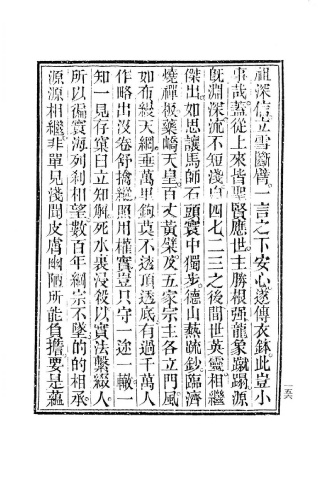 祖深信立雪斷臂。一言之下安心遂傳衣鉢。此豈小
事哉。蓋從上來皆聖賢應世。主勝根强龍象蹴蹋。源
既淵深流不短淺。自四七二三之後間世英靈相繼
傑出。如思讓馬師石頭寰中獨步。德山爇疏鈔。臨濟
燒禪板。藥嶠天皇百丈黃檗。及五家宗主各立門風。
如布縵天網垂萬里鉤。莫不透頂透底有過千萬人
作略。出沒卷舒擒縱照用權實。豈只守一途一轍一
知一見。存窠臼立知解。死水裏浸殺。以實法繫綴人。
所以徧寰海列刹相望。數百年綱宗不墜。的的相承。
源源相繼。非單見淺聞皮膚幽陋所能負擔。要是蘊
一五六